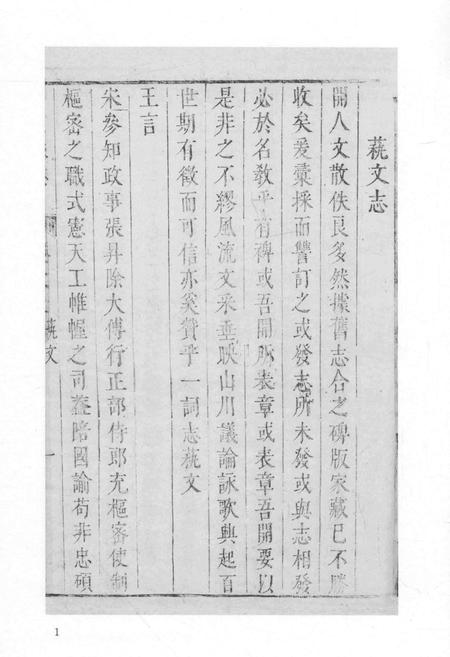 蓺文志
開人文散佚良多然㩀舊志合之碑版家藏已不勝
收矣爰彙採而讐訂之或發志所未發或與志相發
必於名敎乎有裨或吾開所表章或表章吾開要以
是非之不繆風流文采垂映山川議論詠歌興起百
世期有徵而可信亦奚贅乎一詞志蓺文
王言
宋參知政事張昇除大傅行正部侍郎充樞密使制
樞密之職式憲天工帷幄之司葢暗國論苟非忠碩
蓺文
一
1